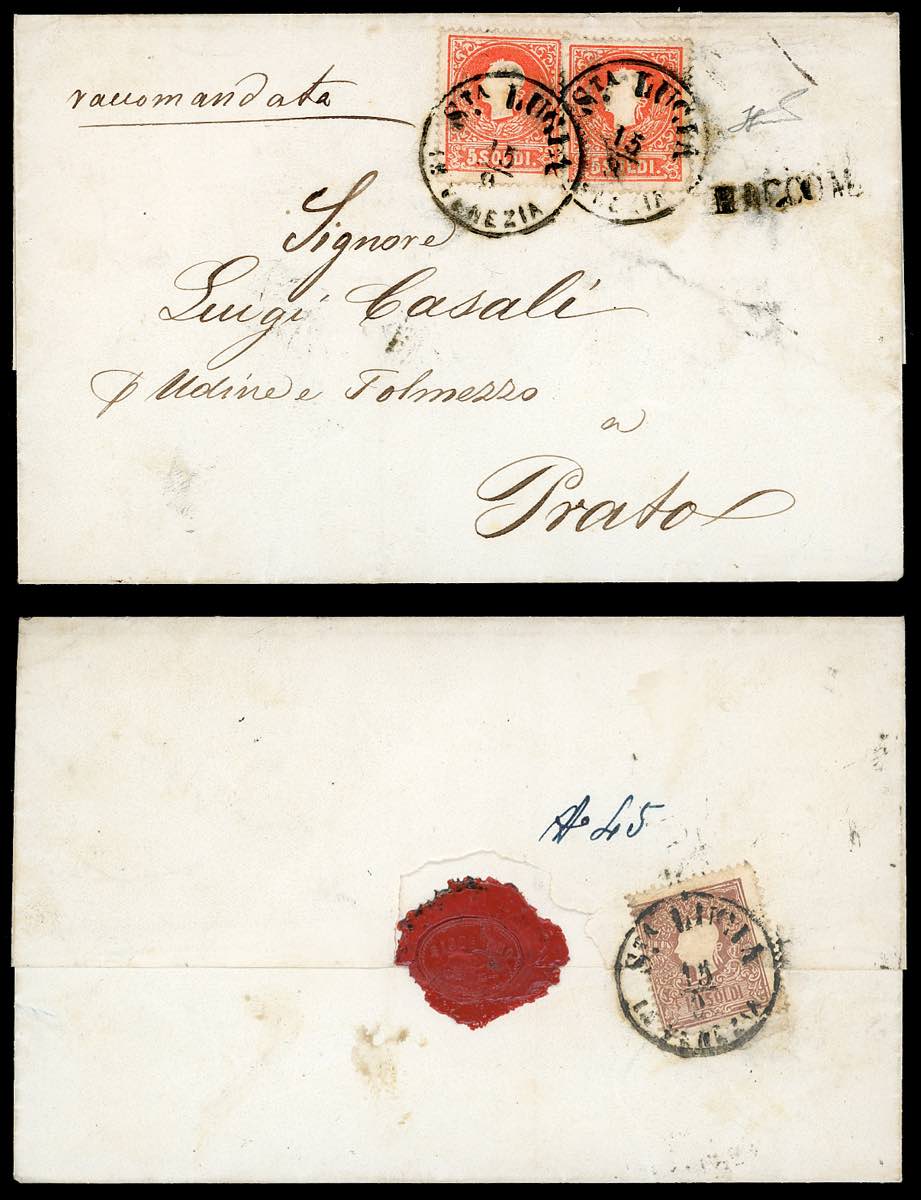 raccomandata
STA LUCIA
15
9
IN VENEZIA
5 SOLDI.
STA LUCIA
15
VENEZIA
5 SOLDI.
RACCOM
Signore
Luigi Casali
p Udine e Tolmezzo
a
Prato
No 45
STA LUCIA
15
9
IN VENEZIA
SOLDI